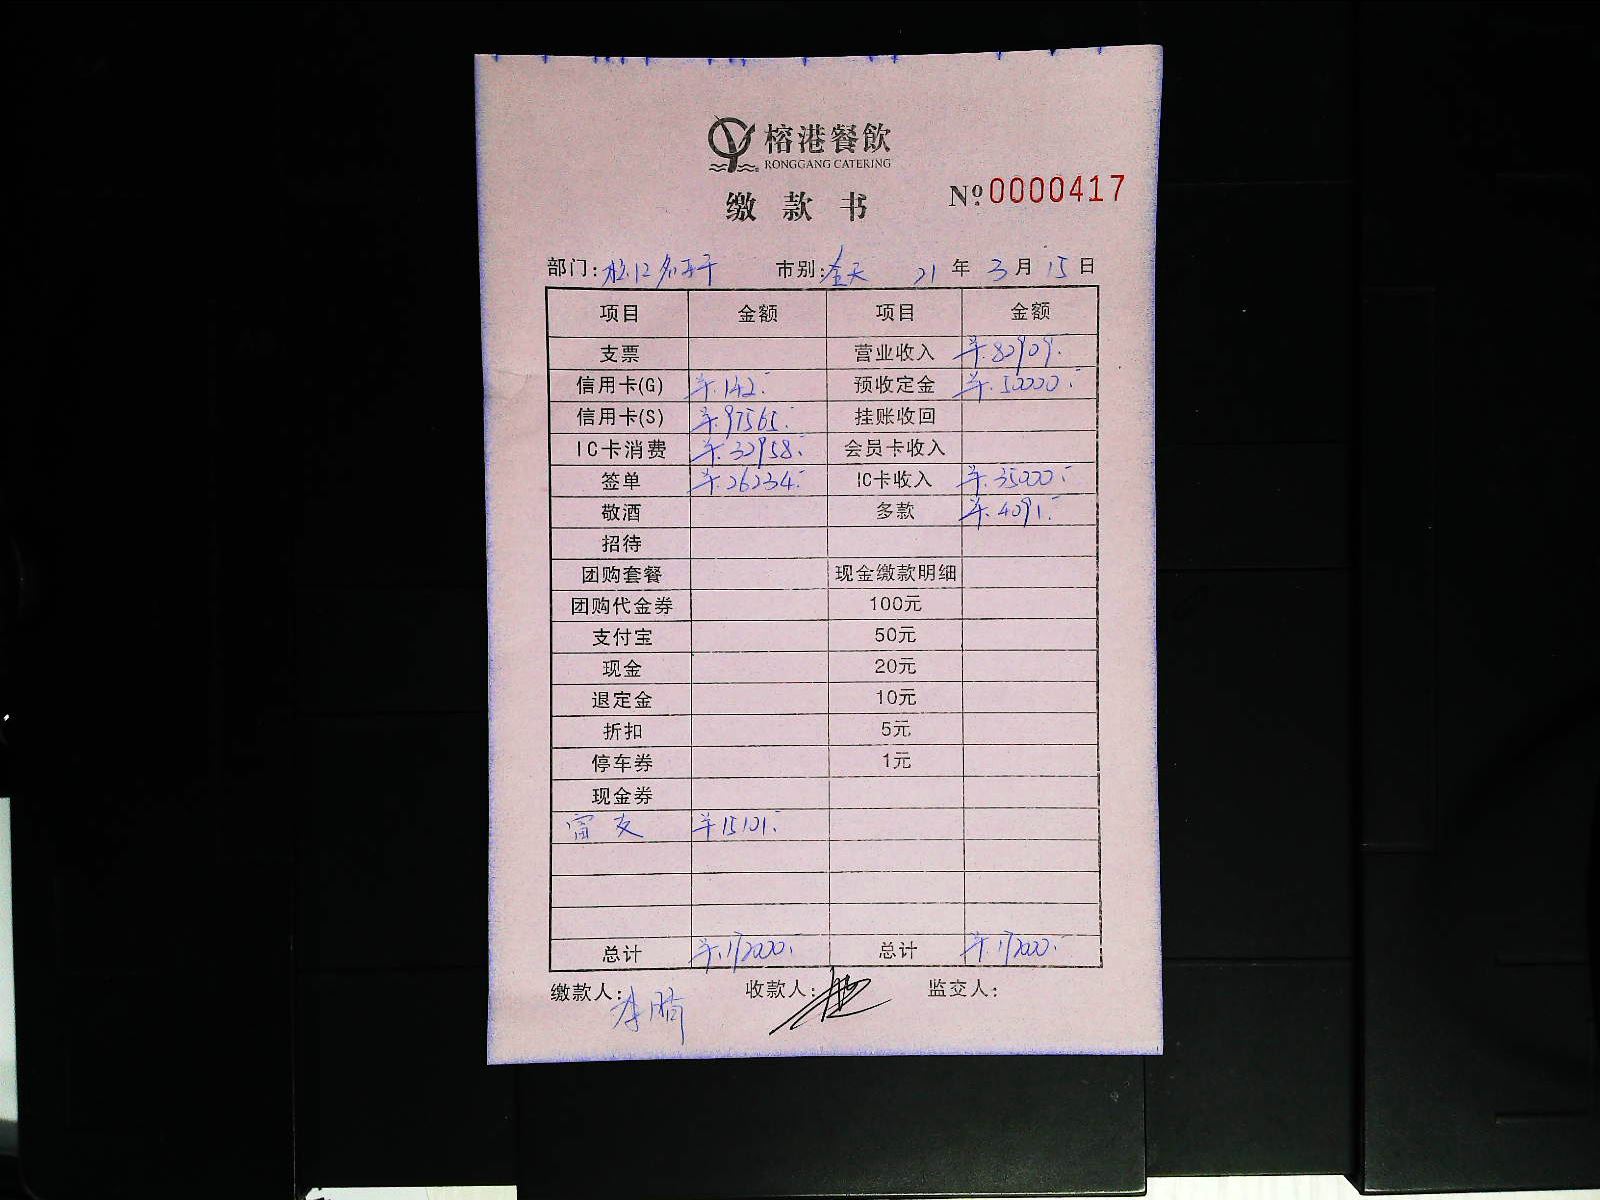 榕港餐飲
RONGGANG CATERING
缴款书 №0000417
部门: 市别:全天 21年3月15日
项目 金额 项目 金额
支票 营业收入 ¥82909.
信用卡(G) ¥.142.- 预收定金 ¥.50000.-
信用卡(S) ¥.97565.- 挂账收回
IC卡消费 ¥.32958.- 会员卡收入
签单 ¥.26234.- IC卡收入 ¥.35000.-
敬酒 多款 ¥.4091.-
招待
团购套餐 现金缴款明细
团购代金券 100元
支付宝 50元
现金 20元
退定金 10元
折扣 5元
停车券 1元
现金券
富友 ¥15101.-
总计 ¥.172000.- 总计 ¥.172000.-
缴款人:李 收款人: 监交人: